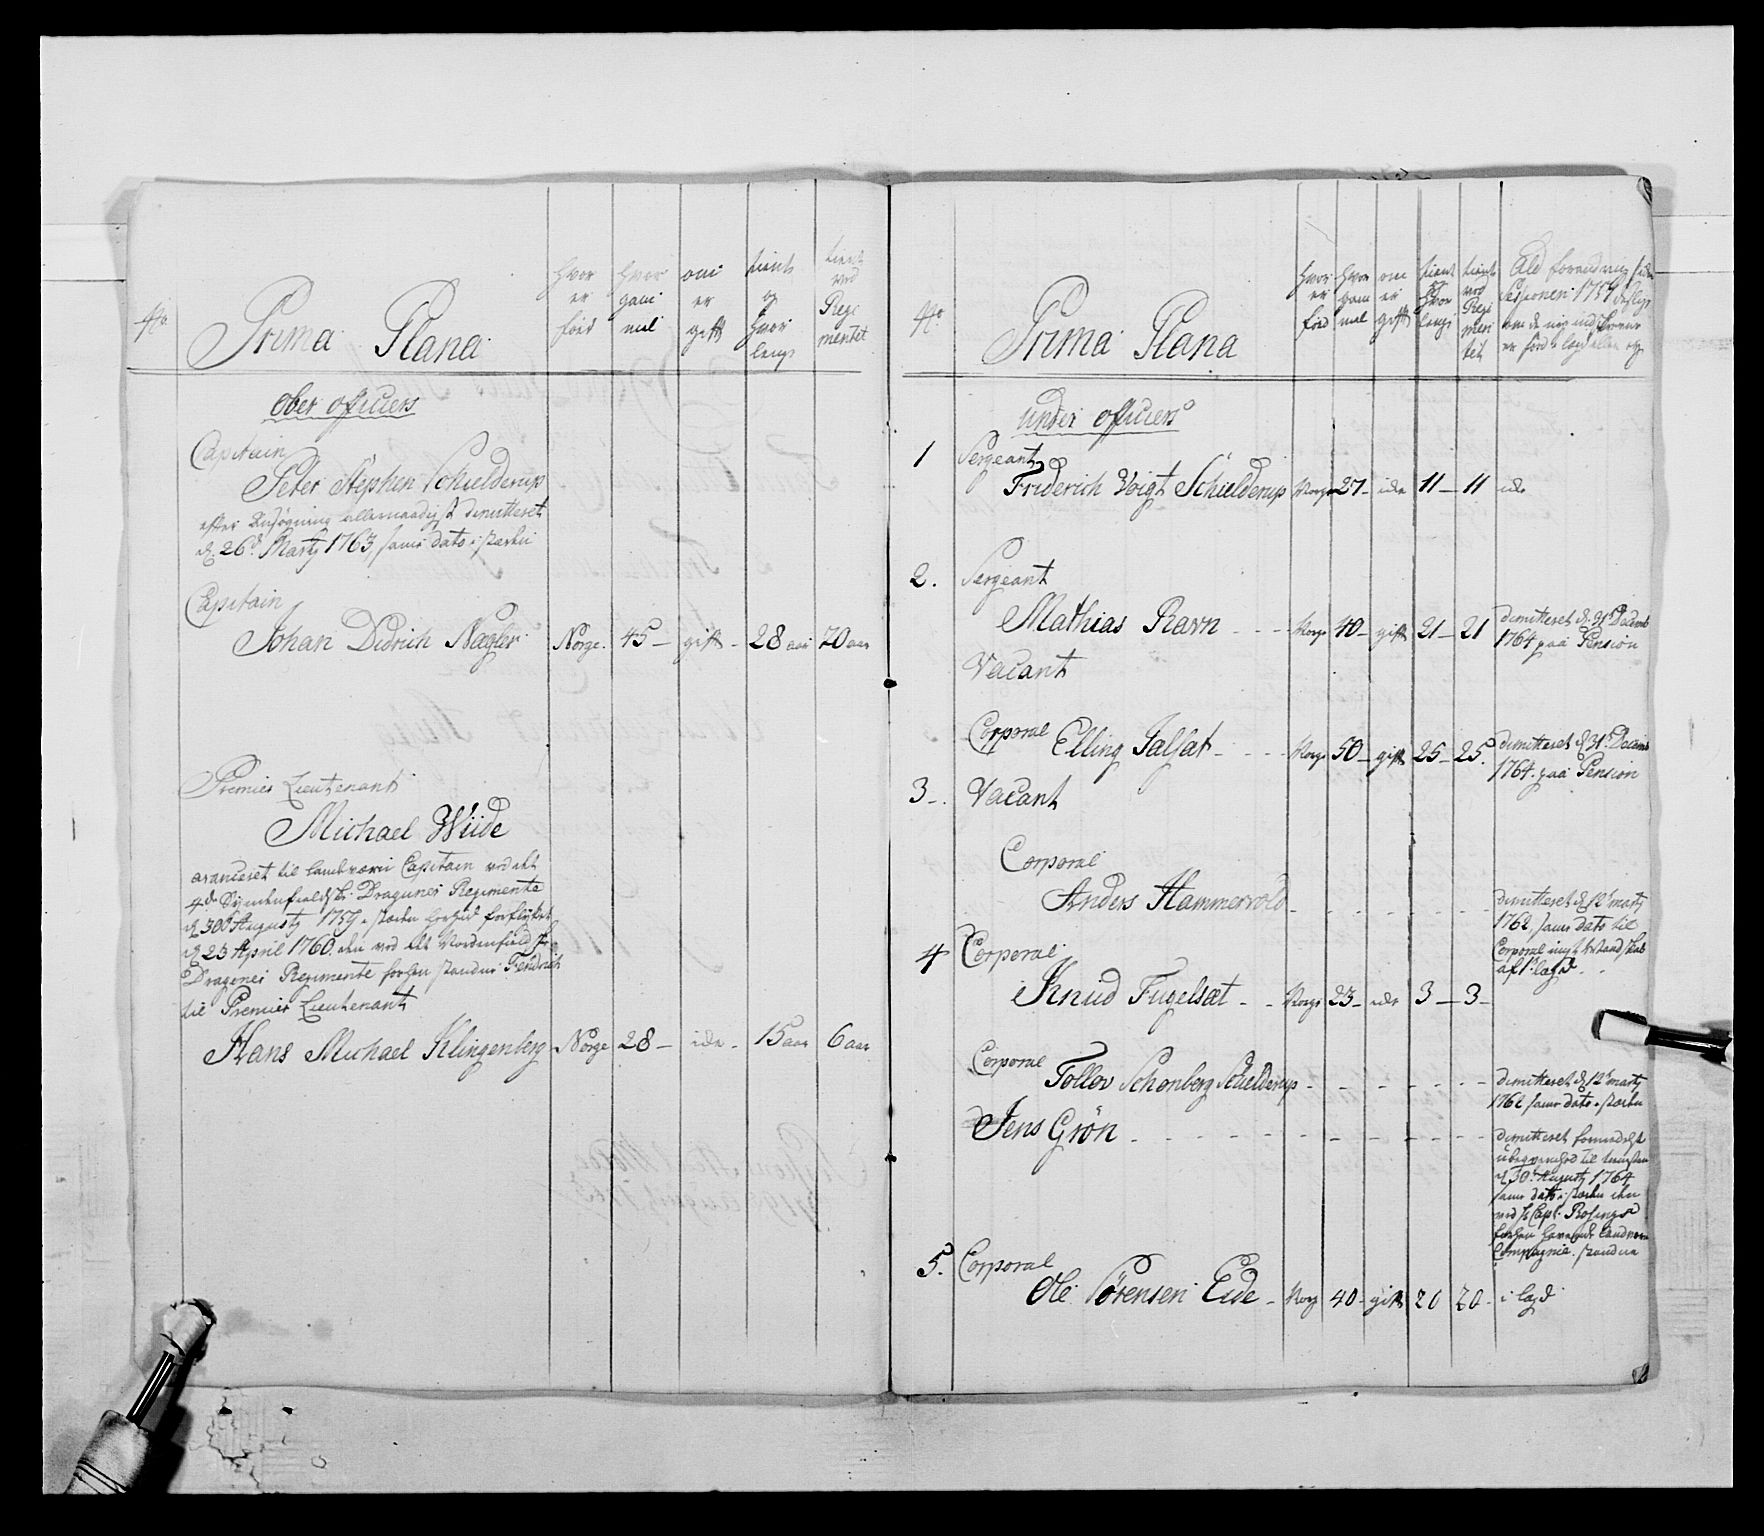 No
Prima Plana
hvor er föed
hvor gam mel
om er gift
tient og hvor lenge
tient ved Regi mentet
Ober officiers
Capitain
Peter Stephen Schielderup
efter Ansögning allernaadigst dimitteret
d. 26d Marty 1763, samme dato i stæden
Capitain
Johan Didrich Nagler Norge. 45 — gift - 28 aar 20 aar
Premier Lieutenant
Michael Wiide
avanceret til landværn Capitain ved det
4de Syndenfieldske Draguner Regimente
d 30d Augusty 1759 i stæden forflyttet
d 23 April 1760 den ved det Nordenfieldske
Dragoner Regimente forhen standne Fendrich
til Premier Lieutenant
Hans Michael Klingenberg Norge 28 — ide - 15 aar 6 aar
No
Prima Plana
hvor er föed
hvor gam mel
om er gift
tient og hvor lenge
tient ved Regi men tet
Ald forandring siden
Sessionen 1759
om de nye indskrevne
er föed i lægd eller ey
Under officiers
1 Sergeant
Friderich Voigt Schielderup Norge 27 - ide 11 — 11 ide
2. Sergeant
Mathias Ravn - - - Norge 40 - gift 21 — 21 dimitteret d. 31 Decemb
1764 paa Pension
Vacant
Corporal Elling Talsæt - - - Norge 50 — gift 25 — 25. dimitteret d 31 Decemb
1764. paa Pension
3 -. Vacant
Corporal
Anders Hammervold - - - - - - dimitteret d 12 marty
1762, samme dato til
4 Corporal Corporal
af 1 lægd. -
Knud Fugelsæt - - Norge 23 - ide 3 — 3 -
Corporal
Tollov Schonberg Schielderup - - - - - - dimitteret d 12 marty
1762 samme dato i stæden
Jens Grön - - - - - - dimitteret formedelst
ubeqvemhed til tienesten
d 30 Augusty 1764
samme dato i stæden den
ved Hr Capt. Rosings
forhen havende Landværn
Compagnie standne
5. Corporal
Ole Sörensen Eide - Norge 40 - gift 20 20 - i lægd